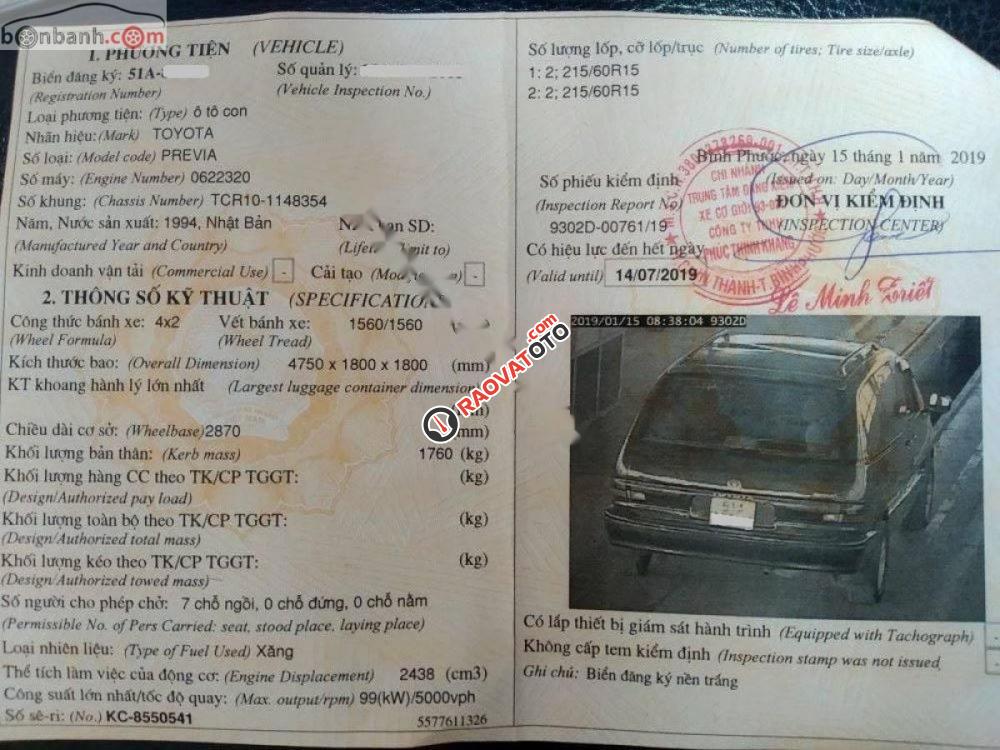 bonbanh.com
1. PHƯƠNG TIỆN (VEHICLE)
Biển đăng ký: 51A-
Số quản lý:
(Registration Number)
(Vehicle Inspection No.)
Loại phương tiện: (Type) ô tô con
Nhãn hiệu: (Mark) TOYOTA
Số loại: (Model code) PREVIA
Số máy: (Engine Number) 0622320
Số khung: (Chassis Number) TCR10-1148354
Năm, Nước sản xuất: 1994, Nhật Bản
SD:
(Manufactured Year and Country)
Kinh doanh vận tải (Commercial Use) -
Cải tạo -
2. THÔNG SỐ KỸ THUẬT (SPECIFICATION
Công thức bánh xe: 4x2
Vết bánh xe: 1560/1560
(Wheel Formula)
(Wheel Tread)
Kích thước bao: (Overall Dimension) 4750 x 1800 x 1800 (mm)
KT khoang hành lý lớn nhất (Largest luggage container dimension)
(mm)
Chiều dài cơ sở: (Wheelbase) 2870 (mm)
Khối lượng bản thân: (Kerb mass) 1760 (kg)
Khối lượng hàng CC theo TK/CP TGGT: (kg)
(Design/Authorized pay load)
Khối lượng toàn bộ theo TK/CP TGGT: (kg)
(Design/Authorized total mass)
Khối lượng kéo theo TK/CP TGGT: (kg)
(Design/Authorized towed mass)
Số người cho phép chở: 7 chỗ ngồi, 0 chỗ đứng, 0 chỗ nằm
(Permissible No. of Pers Carried: seat, stood place, laying place)
Loại nhiên liệu: (Type of Fuel Used) Xăng
Thể tích làm việc của động cơ: (Engine Displacement) 2438 (cm3)
Công suất lớn nhất/tốc độ quay: (Max. output/rpm) 99(kW)/5000vph
Số sê-ri: (No.) KC-8550541
5577611326
Số lượng lốp, cỡ lốp/trục (Number of tires; Tire size/axle)
1: 2; 215/60R15
2: 2; 215/60R15
Bình Phước, ngày 15 tháng 1 năm 2019
Số phiếu kiểm định
(Issued on: Day/Month/Year)
(Inspection Report No)
ĐƠN VỊ KIỂM ĐỊNH
9302D-00761/19
(INSPECTION CENTER)
Có hiệu lực đến hết ngày
(Valid until) 14/07/2019
CHI NHÁNH
TRUNG TÂM ĐĂNG KIỂM
XE CƠ GIỚI
CÔNG TY TNHH
PHÚC THỊNH KHANG
Lê Minh Triết
2019/01/15 08:38:04 9302D
RAOVATOTO.com
Có lắp thiết bị giám sát hành trình (Equipped with Tachograph)
Không cấp tem kiểm định (Inspection stamp was not issued
Ghi chú: Biển đăng ký nền trắng